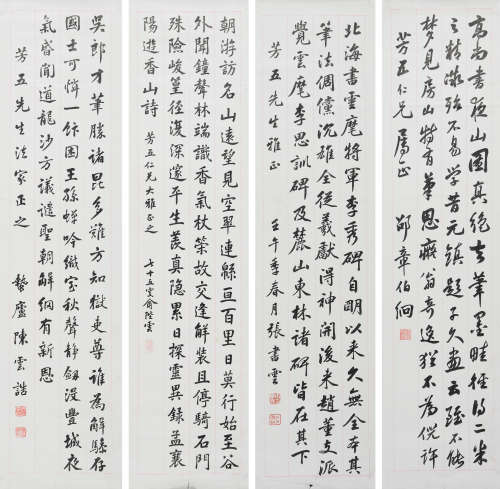 高尚書夜山圖真絕去筆墨畦徑得二米
之精微殆不易學昔元鎮題子久畫云雖不能
夢見房山特有筆思癡翁奇逸猶不為倪許
芳五仁兄屬正 邵章伯絅
北海書雲麾將軍李秀碑自明以來久無全本其
筆法倜儻沉雄全從羲獻得神開後來趙董支派
覺雲麾李思訓碑及麓山東林諸碑皆在其下
芳五先生雅正 壬午季春月張書雲
朝游訪名山遠望見空翠連緜亘百里日莫行始至谷
外聞鐘聲林端識香氣秋筞故交逢解裝且停騎石門
殊險峻篁徑復深邃平生羨真隱累日探靈異錄孟襄
陽遊香山詩 芳五仁兄大雅正之 七十五叟俞陛雲
吳郎才筆勝諸昆多難方知獄吏尊誰為解驂存
國士可憐一飰困王孫蛩吟織室秋聲靜劍沒豐城夜
氣昏聞道龍沙方議譴聖朝解網有新恩
芳五先生法家正之 蟄廬陳雲誥